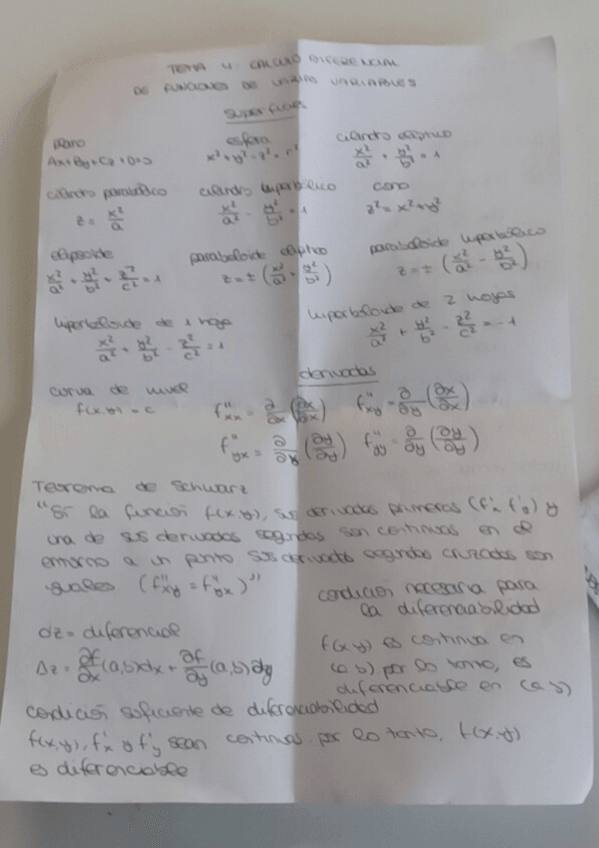 TEMA 4: CALCULO DIFERENCIAL
DE FUNCIONES DE VARIAS VARIABLES
superficies
plano esfera cilindro eliptico
Ax+By+Cz+D=0 x²+y²-z²=r² x²/a² + y²/b² = 1
cilindro parabólico cilindro hiperbólico cono
z = x²/a x²/a² - y²/b² = 1 z²=x²+y²
elipsoide paraboloide eliptico paraboloide hiperbólico
x²/a² + y²/b² + z²/c² = 1 z = ± (x²/a² + y²/b²) z = ± (x²/a² - y²/b²)
hiperboloide de 1 hoja hiperboloide de 2 hojas
x²/a² + y²/b² - z²/c² = 1 x²/a² + y²/b² - z²/c² = -1
derivadas
curva de nivel
f(x,y) = c f''xx = ∂/∂x (∂x/∂x) f''xy = ∂/∂y (∂x/∂x)
f''yx = (∂y/∂y) f''yy = ∂/∂y (∂y/∂y)
Teorema de Schwarz
"Si la función f(x,y), sus derivadas primeras (f'x f'y) y
una de sus derivadas segundas son continuas en el
entorno a un punto sus derivadas segundas cruzadas son
iguales (f''xy = f''yx)"
condición necesaria para
la diferenciabilidad
dz = diferencial
Δz = ∂f/∂x (a,b)dx + ∂f/∂y (a,b) dy
f(x,y) es continua en
(a,b) por lo tanto, es
diferenciable en (a,b)
condición suficiente de diferenciabilidad
f(x,y), f'x y f'y sean continuas por lo tanto, f(x,y)
es diferenciable